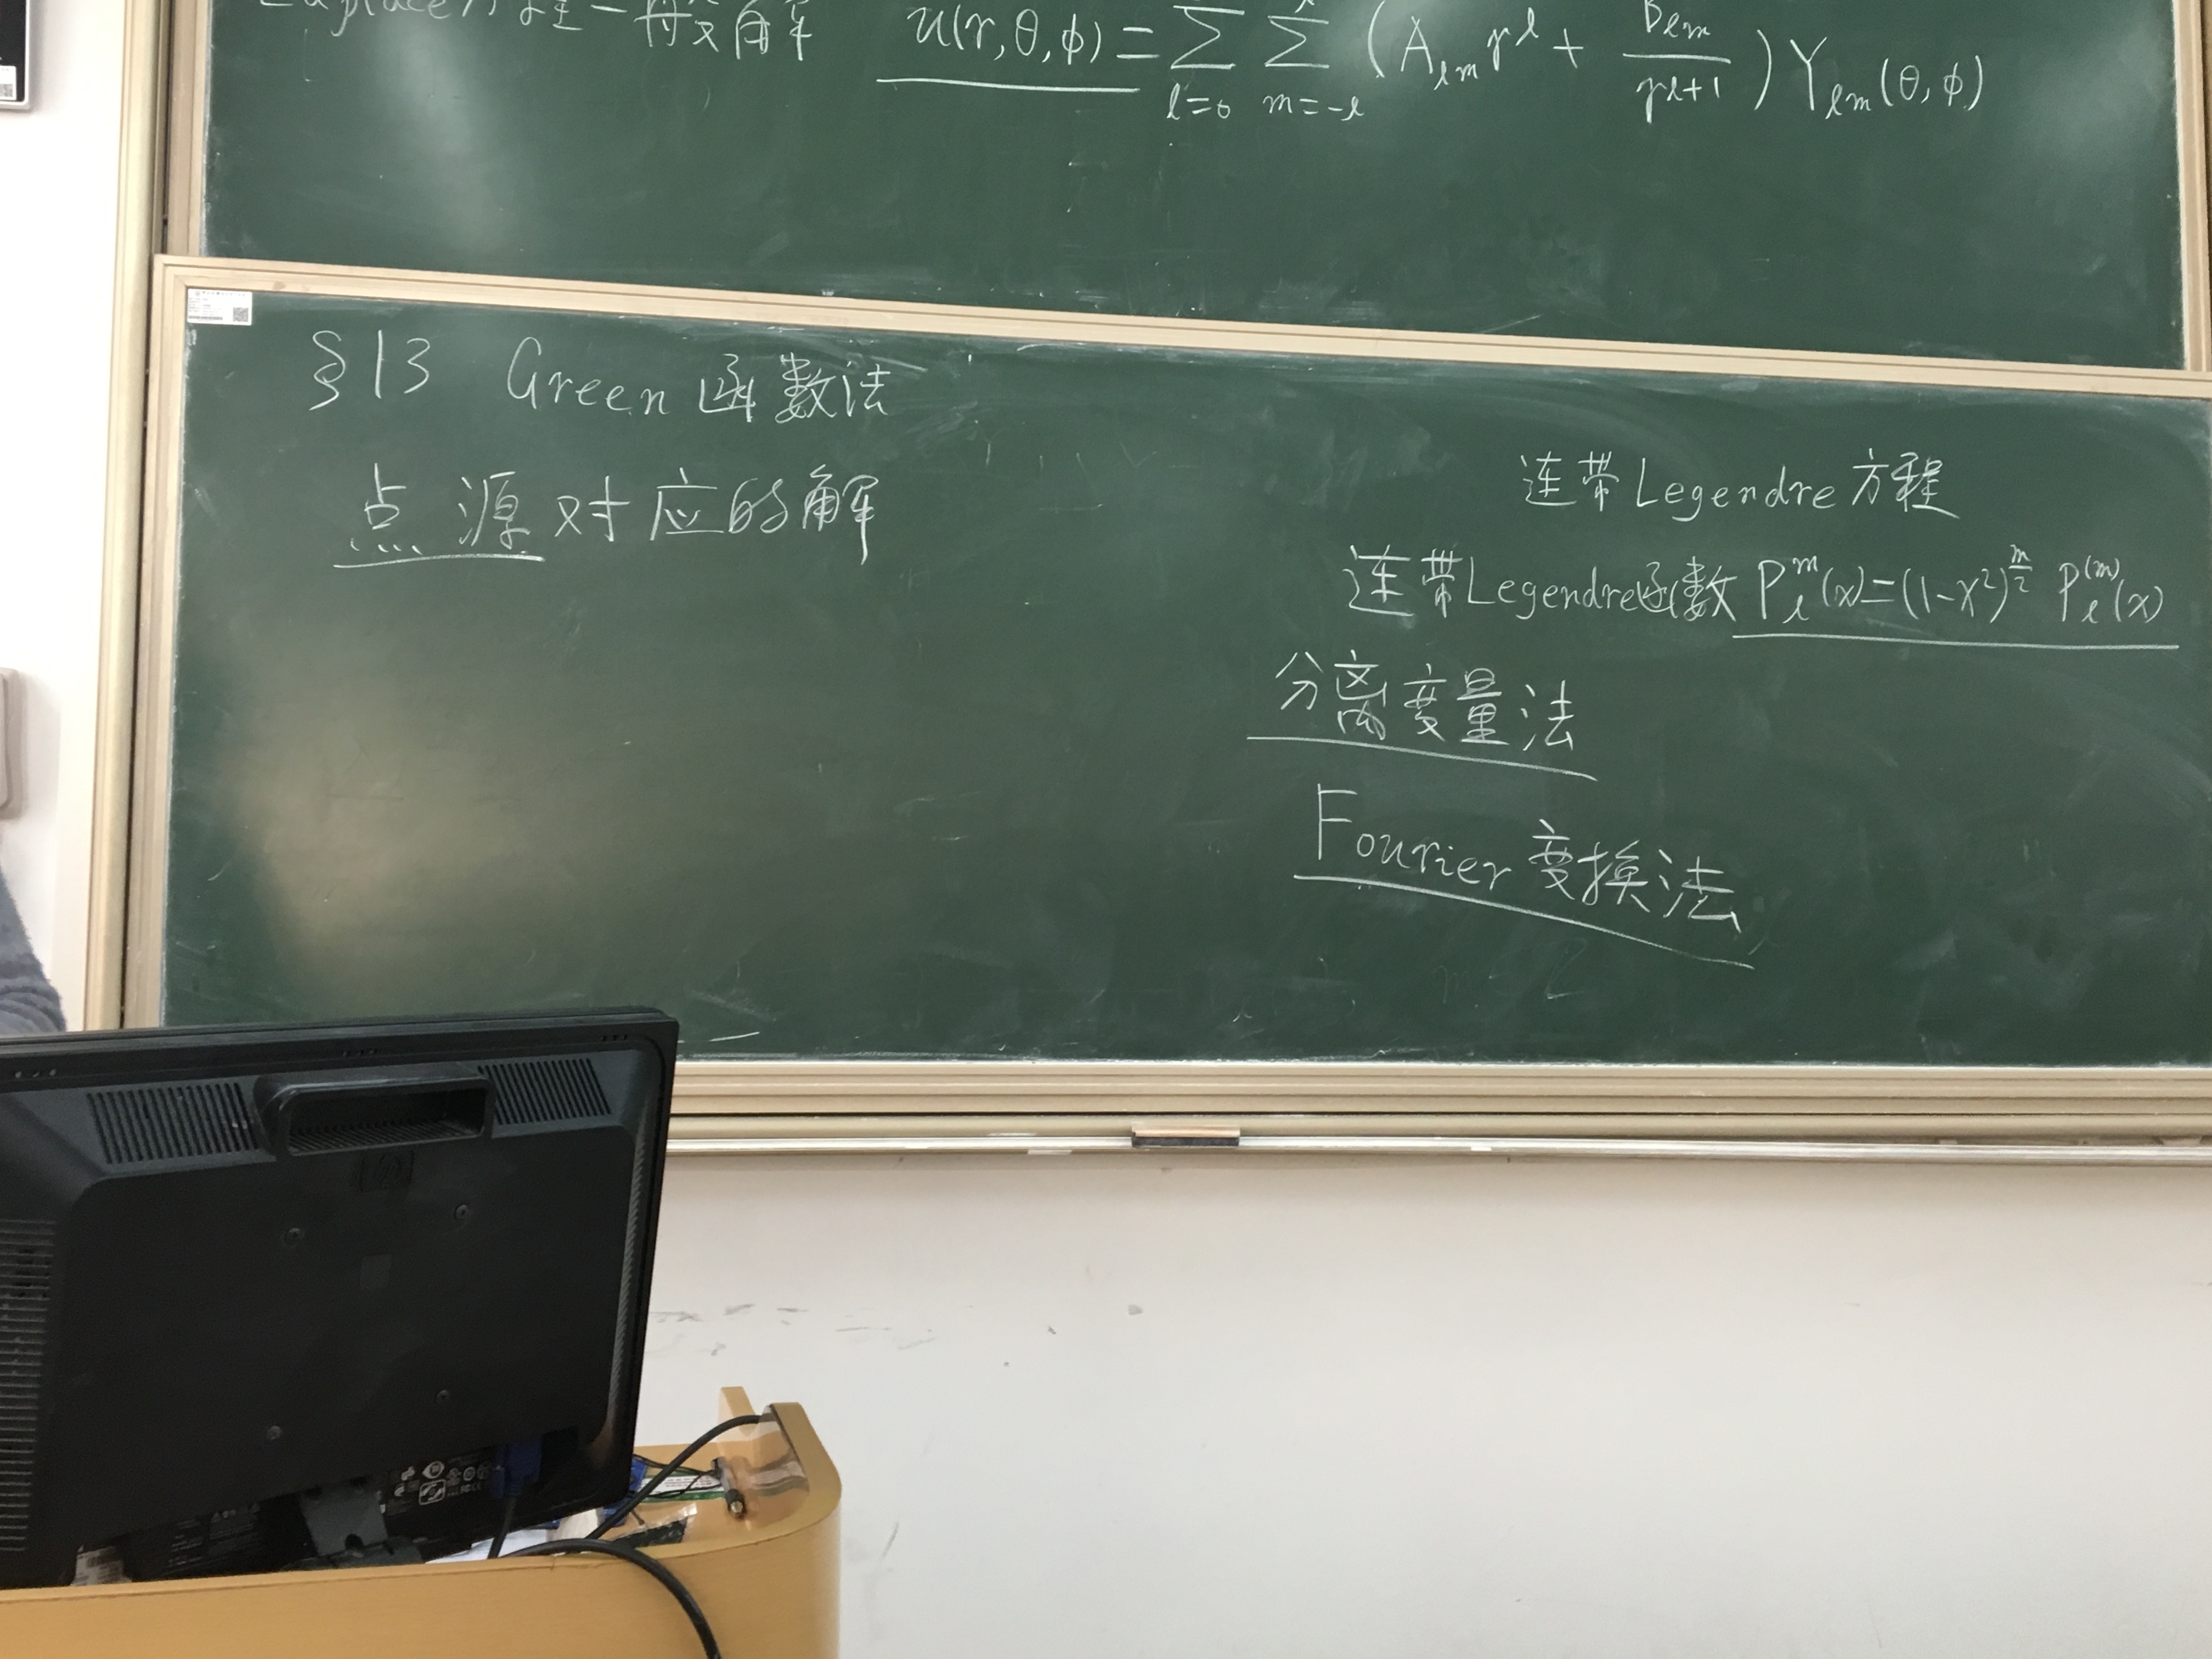 Laplace方程一般解 u(r,θ,φ)=∑_{l=0} ∑_{m=-l}^{l} (A_{lm} r^l + B_{lm}/r^{l+1}) Y_{lm}(θ,φ)
§13 Green函数法
点源对应的解
连带Legendre方程
连带Legendre函数 P_l^m(x)=(1-x²)^{m/2} P_l^{(m)}(x)
分离变量法
Fourier变换法